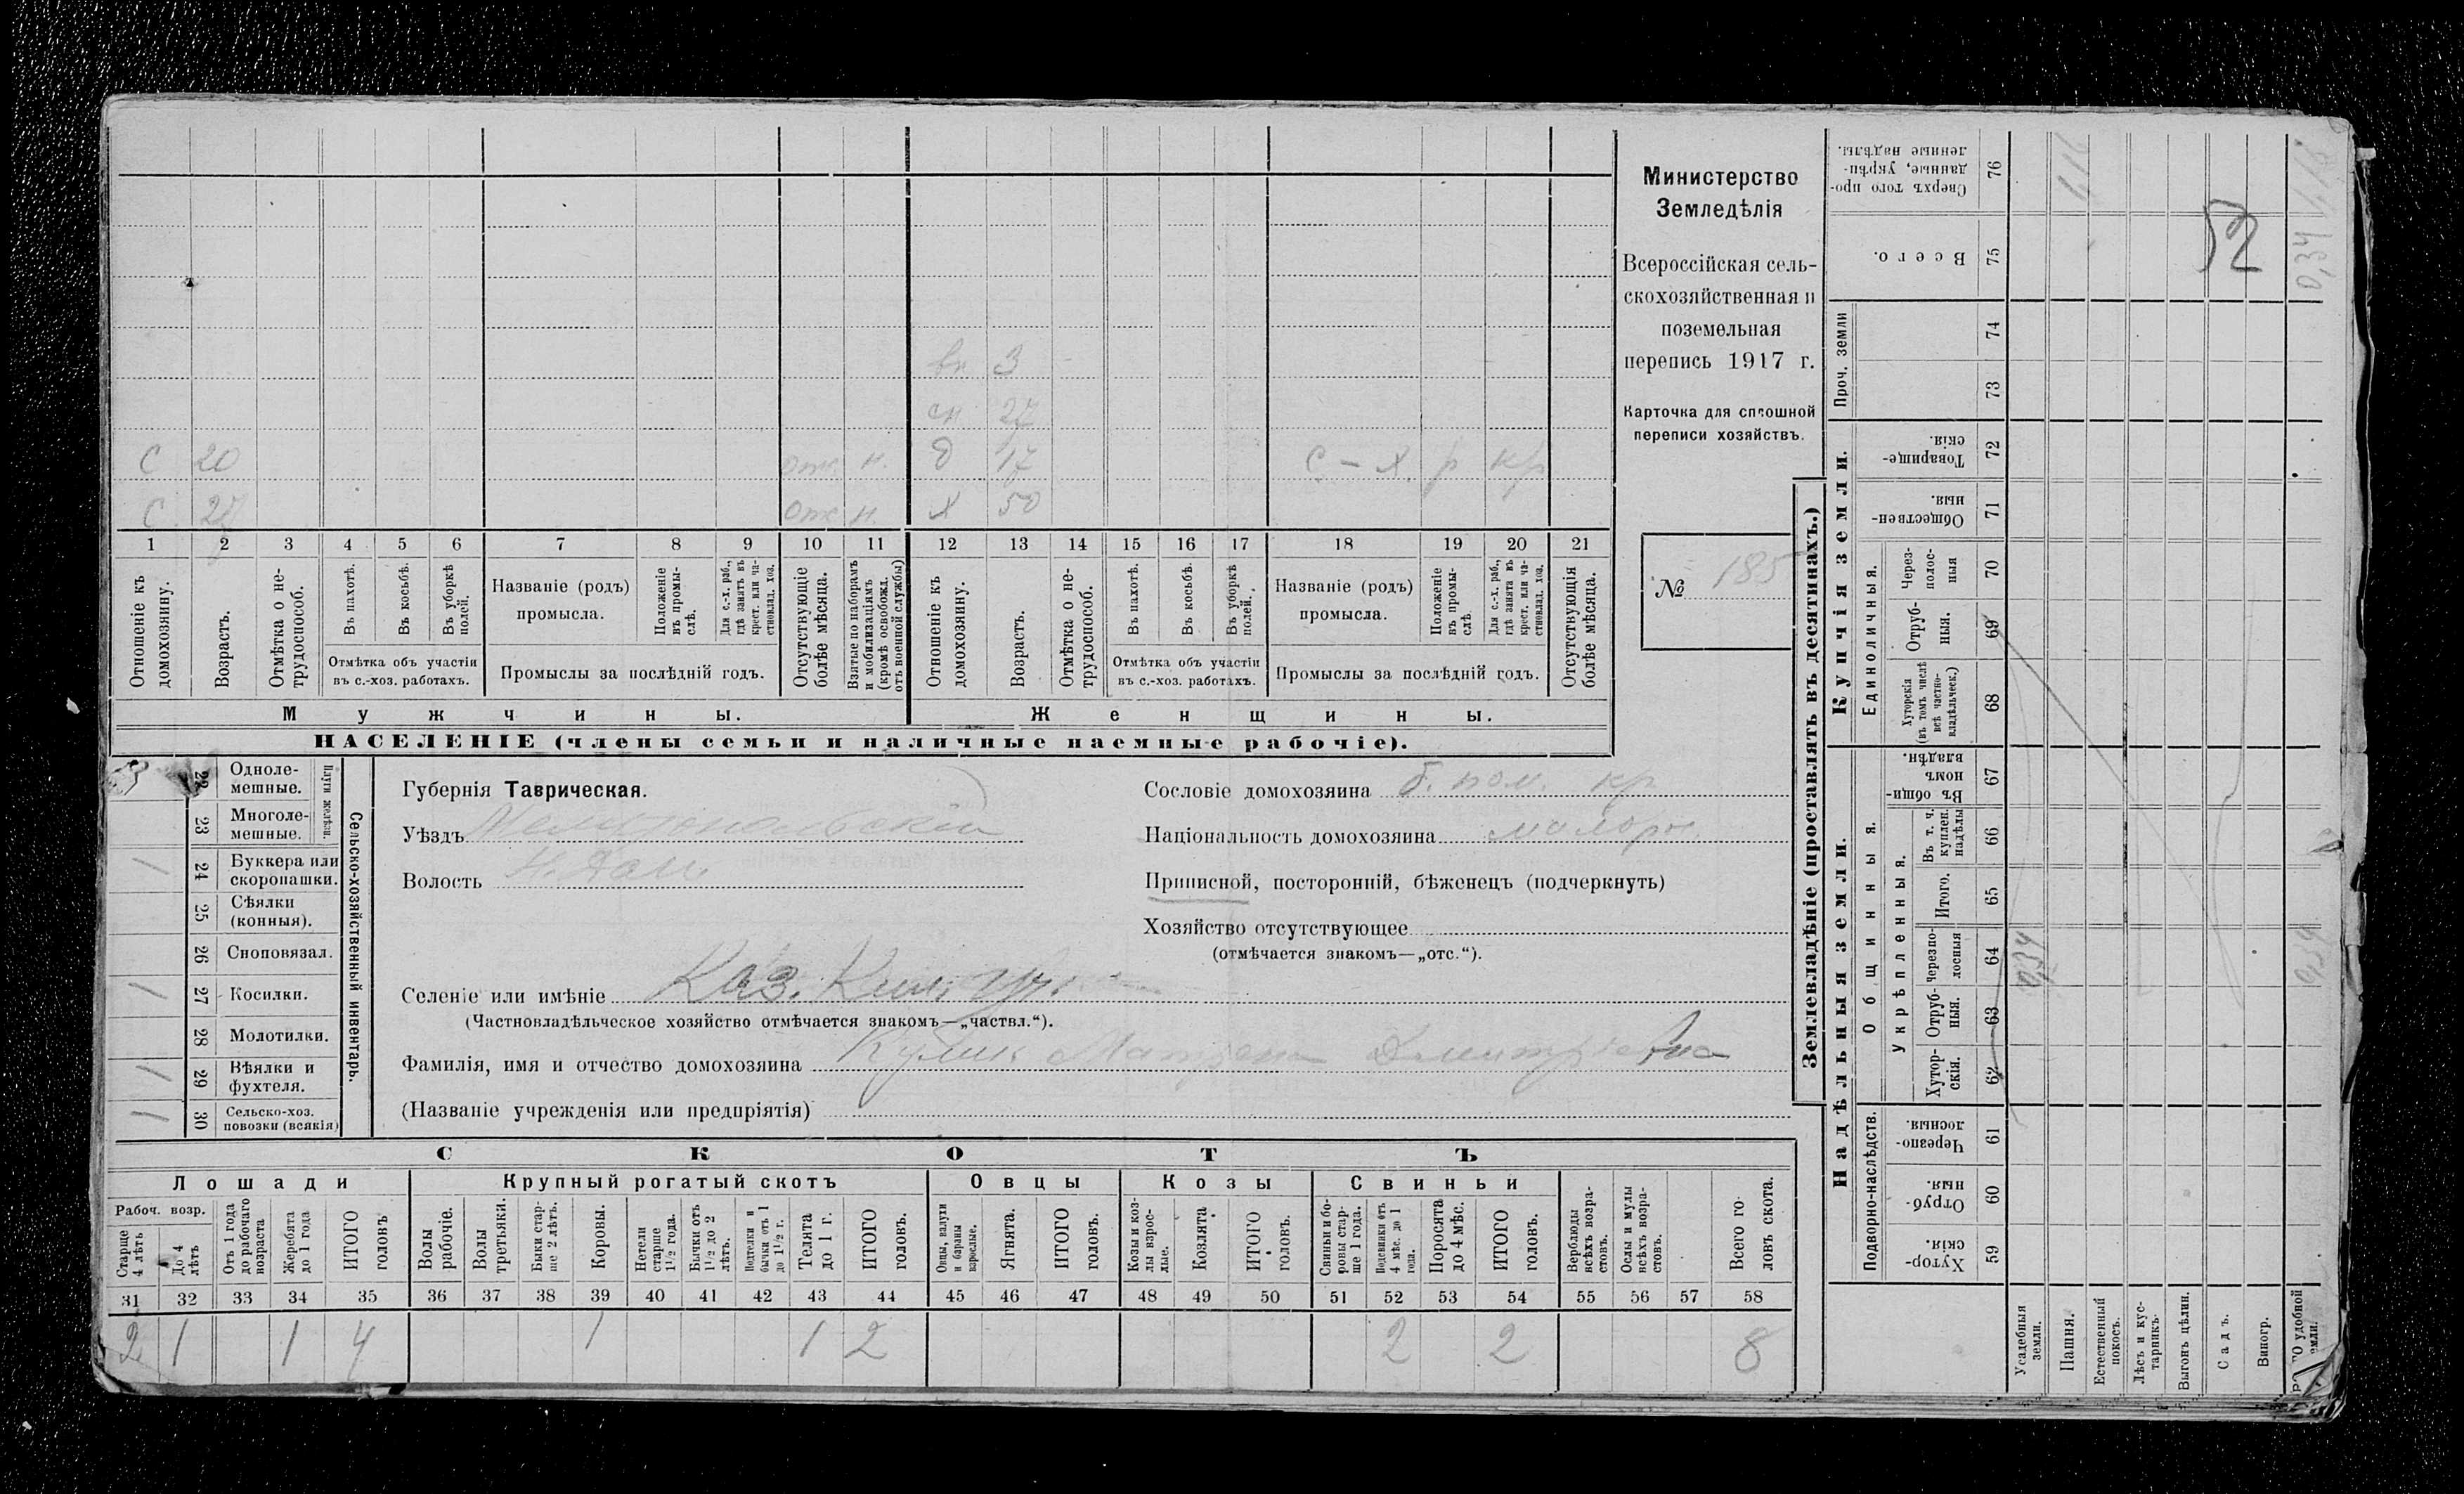 С 20 отс. н.
С 27 отс. н.
вн 3
сн 27
д 17 с-х. р кр
х 50
1 2 3 4 5 6 7 8 9 10 11 12 13 14 15 16 17 18 19 20 21
Отношеніе къ домохозяину.
Возрастъ.
Отмѣтка о не-
трудоспособ.
Въ пахотѣ.
Въ косьбѣ.
Въ уборкѣ
полей.
Отмѣтка объ участіи
въ с.-хоз. работахъ.
Названіе (родъ)
промысла.
Положеніе
въ промы-
слѣ.
Для с.-х. раб.,
гдѣ занятъ въ
крест. или ча-
стновлад. хоз.
Промыслы за послѣдній годъ.
Отсутствующіе
болѣе мѣсяца.
Взятые по наборамъ
и мобилизаціямъ
(кромѣ освобожд.
отъ военной службы)
Отношеніе къ
домохозяину.
Возрастъ.
Отмѣтка о не-
трудоспособ.
Въ пахотѣ.
Въ косьбѣ.
Въ уборкѣ
полей.
Отмѣтка объ участіи
въ с.-хоз. работахъ.
Названіе (родъ)
промысла.
Положеніе
въ промы-
слѣ
Для с.-х. раб.,
гдѣ занятъ въ
крест. или ча-
стновлад. хоз.
Промыслы за послѣдній годъ.
Отсутствующія
болѣе мѣсяца.
Мужчины.
Женщины.
НАСЕЛЕНІЕ (члены семьи и наличные наемные рабочіе).
Министерство
Земледѣлія
Всероссійская сель-
скохозяйственная и
поземельная
перепись 1917 г.
Карточка для сплошной
переписи хозяйствъ.
№ 185
Сельско-хозяйственный инвентарь.
Плуги желѣзн.
22 Одноле-
мешные.
23 Многоле-
мешные.
/ 24 Буккера или
скоропашки.
25 Сѣялки
(конныя).
26 Сноповязал.
/ 27 Косилки.
28 Молотилки.
/ 29 Вѣялки и
фухтеля.
/ 30 Сельско-хоз.
повозки (всякія)
Губернія Таврическая.
Уѣздъ Мелитопольскій
Волость
Селеніе или имѣніе Каз.
(Частновладѣльческое хозяйство отмѣчается знакомъ—„частвл.“).
Фамилія, имя и отчество домохозяина Кулик Матрена Дмитріевна
(Названіе учрежденія или предпріятія)
Сословіе домохозяина б. пом. кр
Національность домохозяина малорос.
Приписной, посторонній, бѣженецъ (подчеркнуть)
Хозяйство отсутствующее
(отмѣчается знакомъ—„отс.“).
СКОТЪ
Лошади
Крупный рогатый скотъ
Овцы
Козы
Свиньи
Рабоч. возр.
Старше
4 лѣтъ
До 4
лѣтъ
Отъ 1 года
до рабочаго
возраста
Жеребята
до 1 года
ИТОГО
головъ
Волы
рабочіе.
Волы
третьяки.
Быки стар-
ше 2 лѣтъ.
Коровы.
Нетели
старше
1½ года.
Бычки отъ
1½ до 2
лѣтъ.
Подтелки и
бычки отъ 1
до 1½ г.
Телята
до 1 г.
ИТОГО
головъ.
Овцы, валухи
и бараны
взрослые.
Ягнята.
ИТОГО
головъ.
Козы и коз-
лы взрос-
лые.
Козлята
ИТОГО
головъ.
Свиньи и бо-
ровы стар-
ше 1 года.
Подсвинки отъ
4 мѣс. до 1
года.
Поросята
до 4 мѣс.
ИТОГО
головъ.
Верблюды
всѣхъ возра-
стовъ.
Ослы и мулы
всѣхъ возра-
стовъ.
Всего го-
ловъ скота.
31 32 33 34 35 36 37 38 39 40 41 42 43 44 45 46 47 48 49 50 51 52 53 54 55 56 57 58
2 1 1 4 1 1 2 2 2 8
Землевладѣніе (проставлять въ десятинахъ.)
Купчія земли.
Надѣльныя земли.
Проч. земли
Сверхъ того про-
данные, укрѣп-
ленные надѣлы.
76
Всего.
75
74
73
Товарище-
скія.
72
Обществен-
ныя.
71
Единоличныя.
Через-
полос-
ныя
70
Отруб-
ныя.
69
Хуторскія
(въ томъ числѣ
всѣ частно-
владѣльческ.)
68
Общинныя.
Въ общи-
номъ
владѣн.
67
Укрѣпленныя.
Въ т. ч.
куплен.
надѣлы
66
Итого.
65
черезпо-
лосныя
64
Отруб-
ныя.
63
Хутор-
скія.
62
Подворно-наслѣдств.
Черезпо-
лосныя.
61
Отруб-
ныя.
60
Хутор-
скія.
59
Усадебныя
земли.
Пашня.
Естественный
покосъ.
Лѣсъ и кус-
тарникъ.
Выгонъ цѣлин.
Садъ.
Виногр.
удобной
земли.
52
0,34
0,34